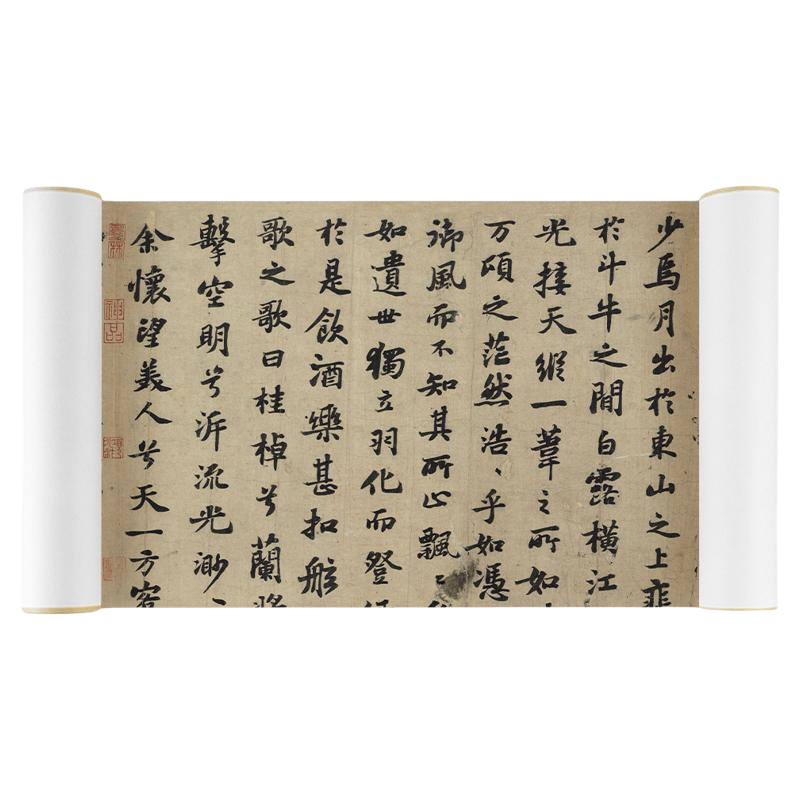 少焉月出於東山之上
於斗牛之間白露橫江
光接天縱一葦之所如
万頃之茫然浩〻乎如憑
御風而不知其所止飄〻
如遺世獨立羽化而登
於是飲酒樂甚扣舷
歌之歌曰桂棹兮蘭
擊空明兮泝流光渺〻
余懷望美人兮天一方客
神品